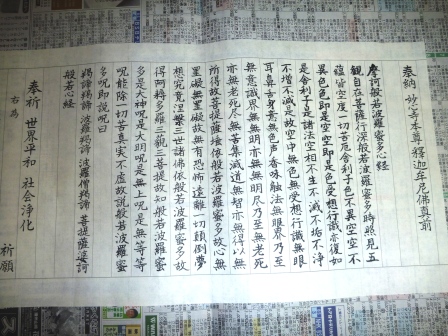 奉納 妙心寺本尊 釋迦牟尼佛真前
摩訶般若波羅蜜多心経
観自在菩薩行深般若波羅蜜多時照見五
蘊皆空度一切苦厄舎利子色不異空空不
異色色即是空空即是色受想行識亦復如
是舎利子是諸法空相不生不滅不垢不浄
不増不減是故空中無色無受想行識無眼
耳鼻舌身意無色声香味触法無眼界乃至
無意識界無無明亦無無明尽乃至無老死
亦無老死尽無苦集滅道無智亦無得以無
所得故菩提薩埵依般若波羅蜜多故心無
罣礙無罣礙故無有恐怖遠離一切顛倒夢
想究竟涅槃三世諸佛依般若波羅蜜多故
得阿耨多羅三藐三菩提故知般若波羅蜜
多是大神呪是大明呪是無上呪是無等等
呪能除一切苦真実不虚故説般若波羅蜜
多呪即説呪曰
羯諦羯諦 波羅羯諦 波羅僧羯諦 菩提薩婆訶
般若心経
奉祈 世界平和 社会浄化
右為 祈願